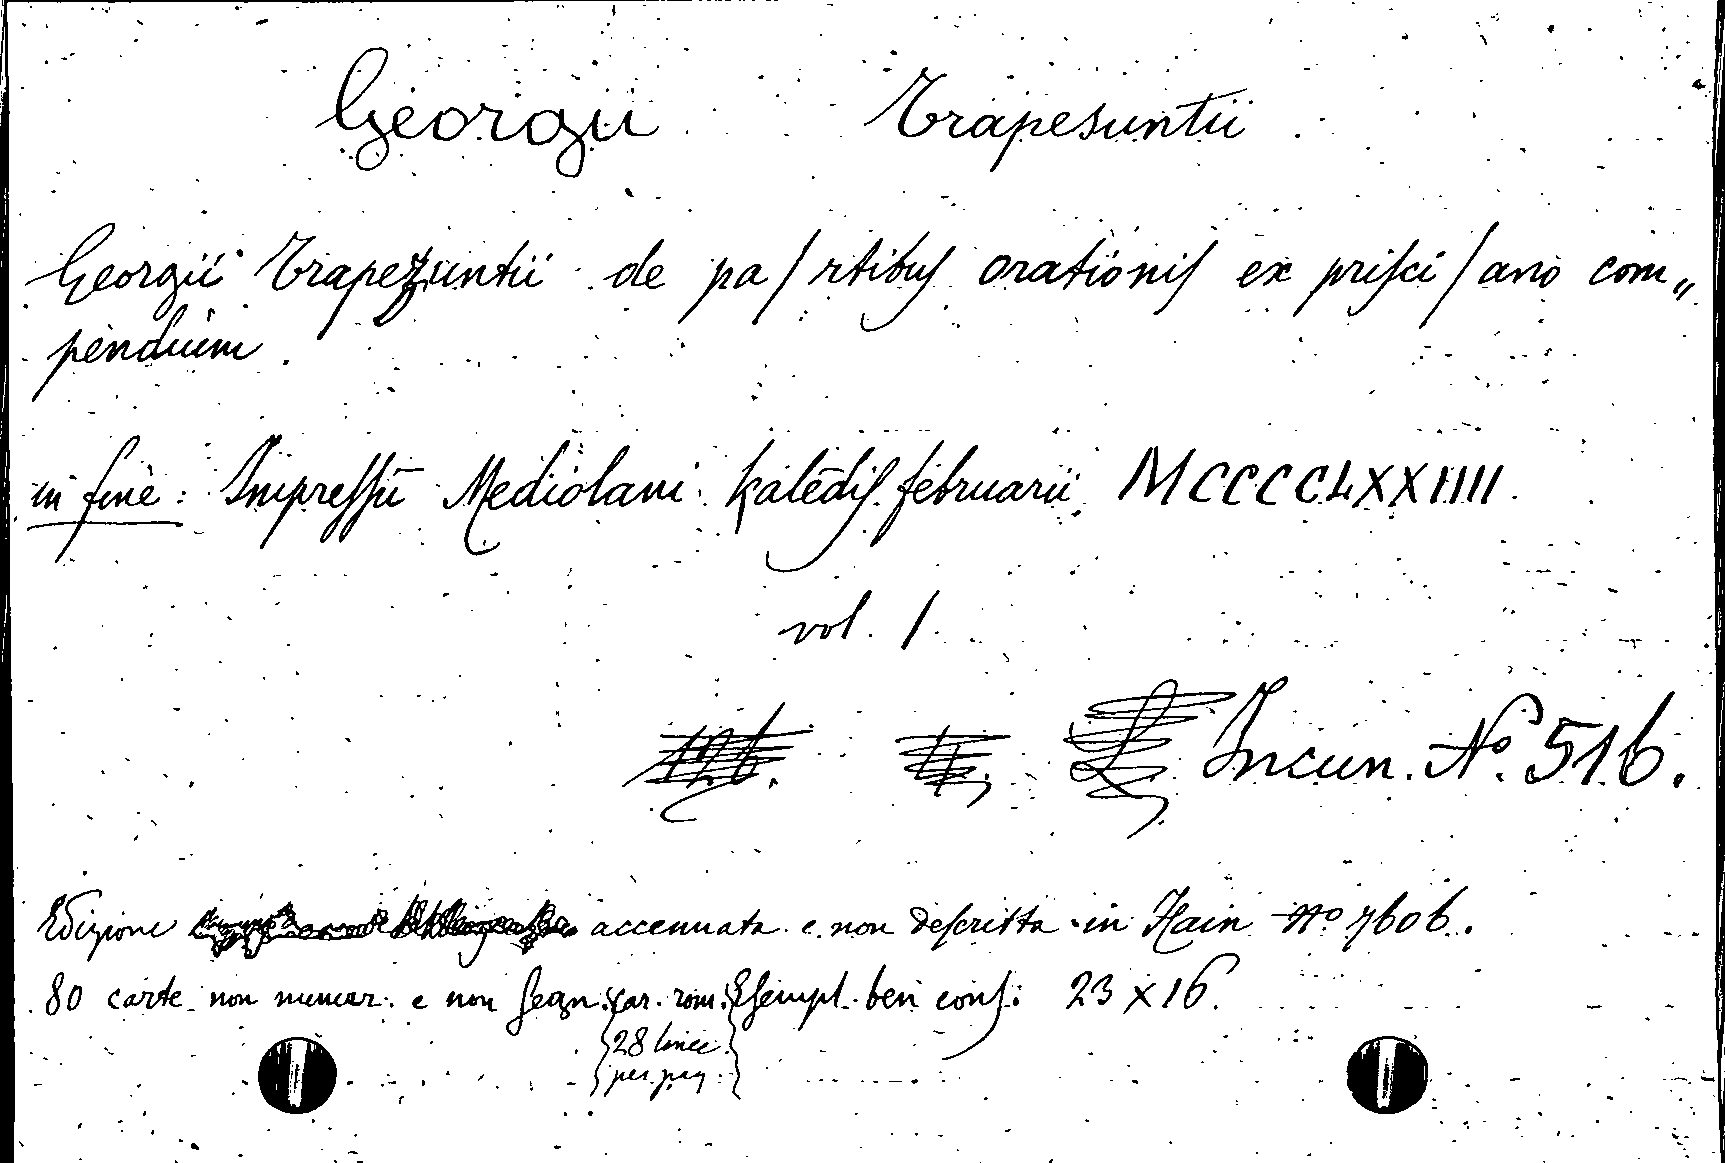 Georgii Trapesuntii
Georgii Trapezuntii de pa/rtibuſ orationiſ ex priſci/ano com„
pendium.
in fine: Impreſſū Mediolani kalēdiſ februarii MCCCCLXXIIII.
vol. 1.
Incun. Nº. 516.
Edizione accennata e non deſcritta in Hain Nº 7606.
80 carte non numer. e non ſegn. {car. rom.} Eſempl. ben conſ. 23 x 16.
{28 linee}
{per pag.}